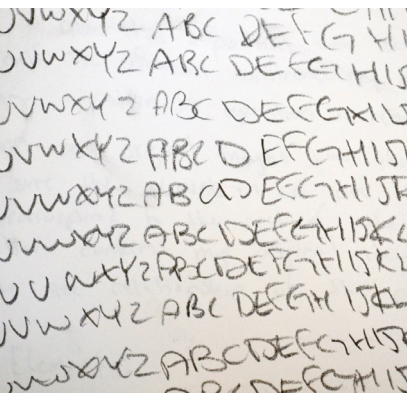 UVWXYZ ABC DEFG HI
UVWXYZ ABC DEFGHIJ
UVWXYZ ABC DEFGHIJ
UVWXYZ ABC D EFGHIJ
UVWXYZ AB CD EFGHIJK
UVWXYZ ABCDEFGHIJKL
UV WXYZ ABCDEFGHIJKL
UVW XYZ ABC DEFGH IJKL
UVWXYZ ABCDEFGHIJ